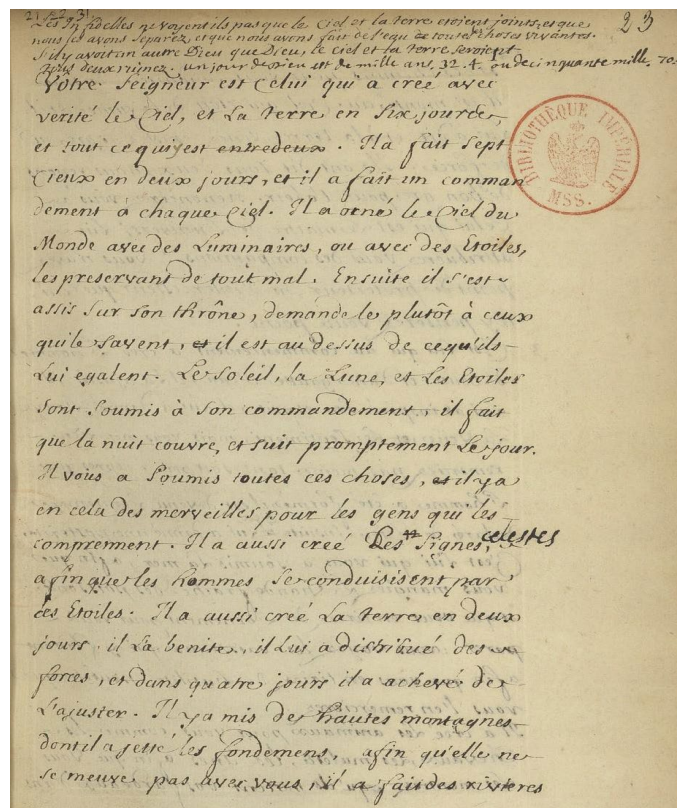 23
Les infidelles ne voyent ils pas que le Ciel et la terre etoient joints, et que
nous les avons separez, et que nous avons fait de l'equ de toutes choses vivantes.
S'il y avoit un autre Dieu que Dieu, le Ciel et la terre seroient
tous deux ruinez. un jour de Dieu est de mille ans, 32. 4. ou de cinquante mille. 70.
Votre Seigneur est Celui qui a creé avec
verité le Ciel, et La terre en six jours,
et tout ce qui yest entredeux. Il a fait sept
Cieux en deux jours, et il a fait un comman-
dement à chaque Ciel. Il a orné le Ciel du
Monde avec des Luminaires, ou avec des Etoiles,
les preservant de tout mal. Ensuite il s'est
assis sur son thrône, demande le plutôt à ceux
qui le savent, et il est au dessus de ce qu'ils
Lui egalent. Le Soleil, la Lune, et Les Etoiles
sont soumis à son commandement, il fait
que la nuit couvre, et suit promptement Le jour.
Il vous a soumis toutes ces choses, et il y a
en cela des merveilles pour les gens qui les
comprennent. Il a aussi creé Des Signes, celestes
afin que les hommes se conduisisent par
ces Etoiles. Il a aussi creé La terre en deux
jours, il La benite, il Lui a distribué des
forces, et dans quatre jours il a achevé de
L'ajuster. Il y a mis de hautes montagnes
dont il a jetté les fondemens, afin qu'elle ne
se meuve pas avec vous, il a fait des rivieres
BIBLIOTHÈQUE IMPÉRIALE
MSS.